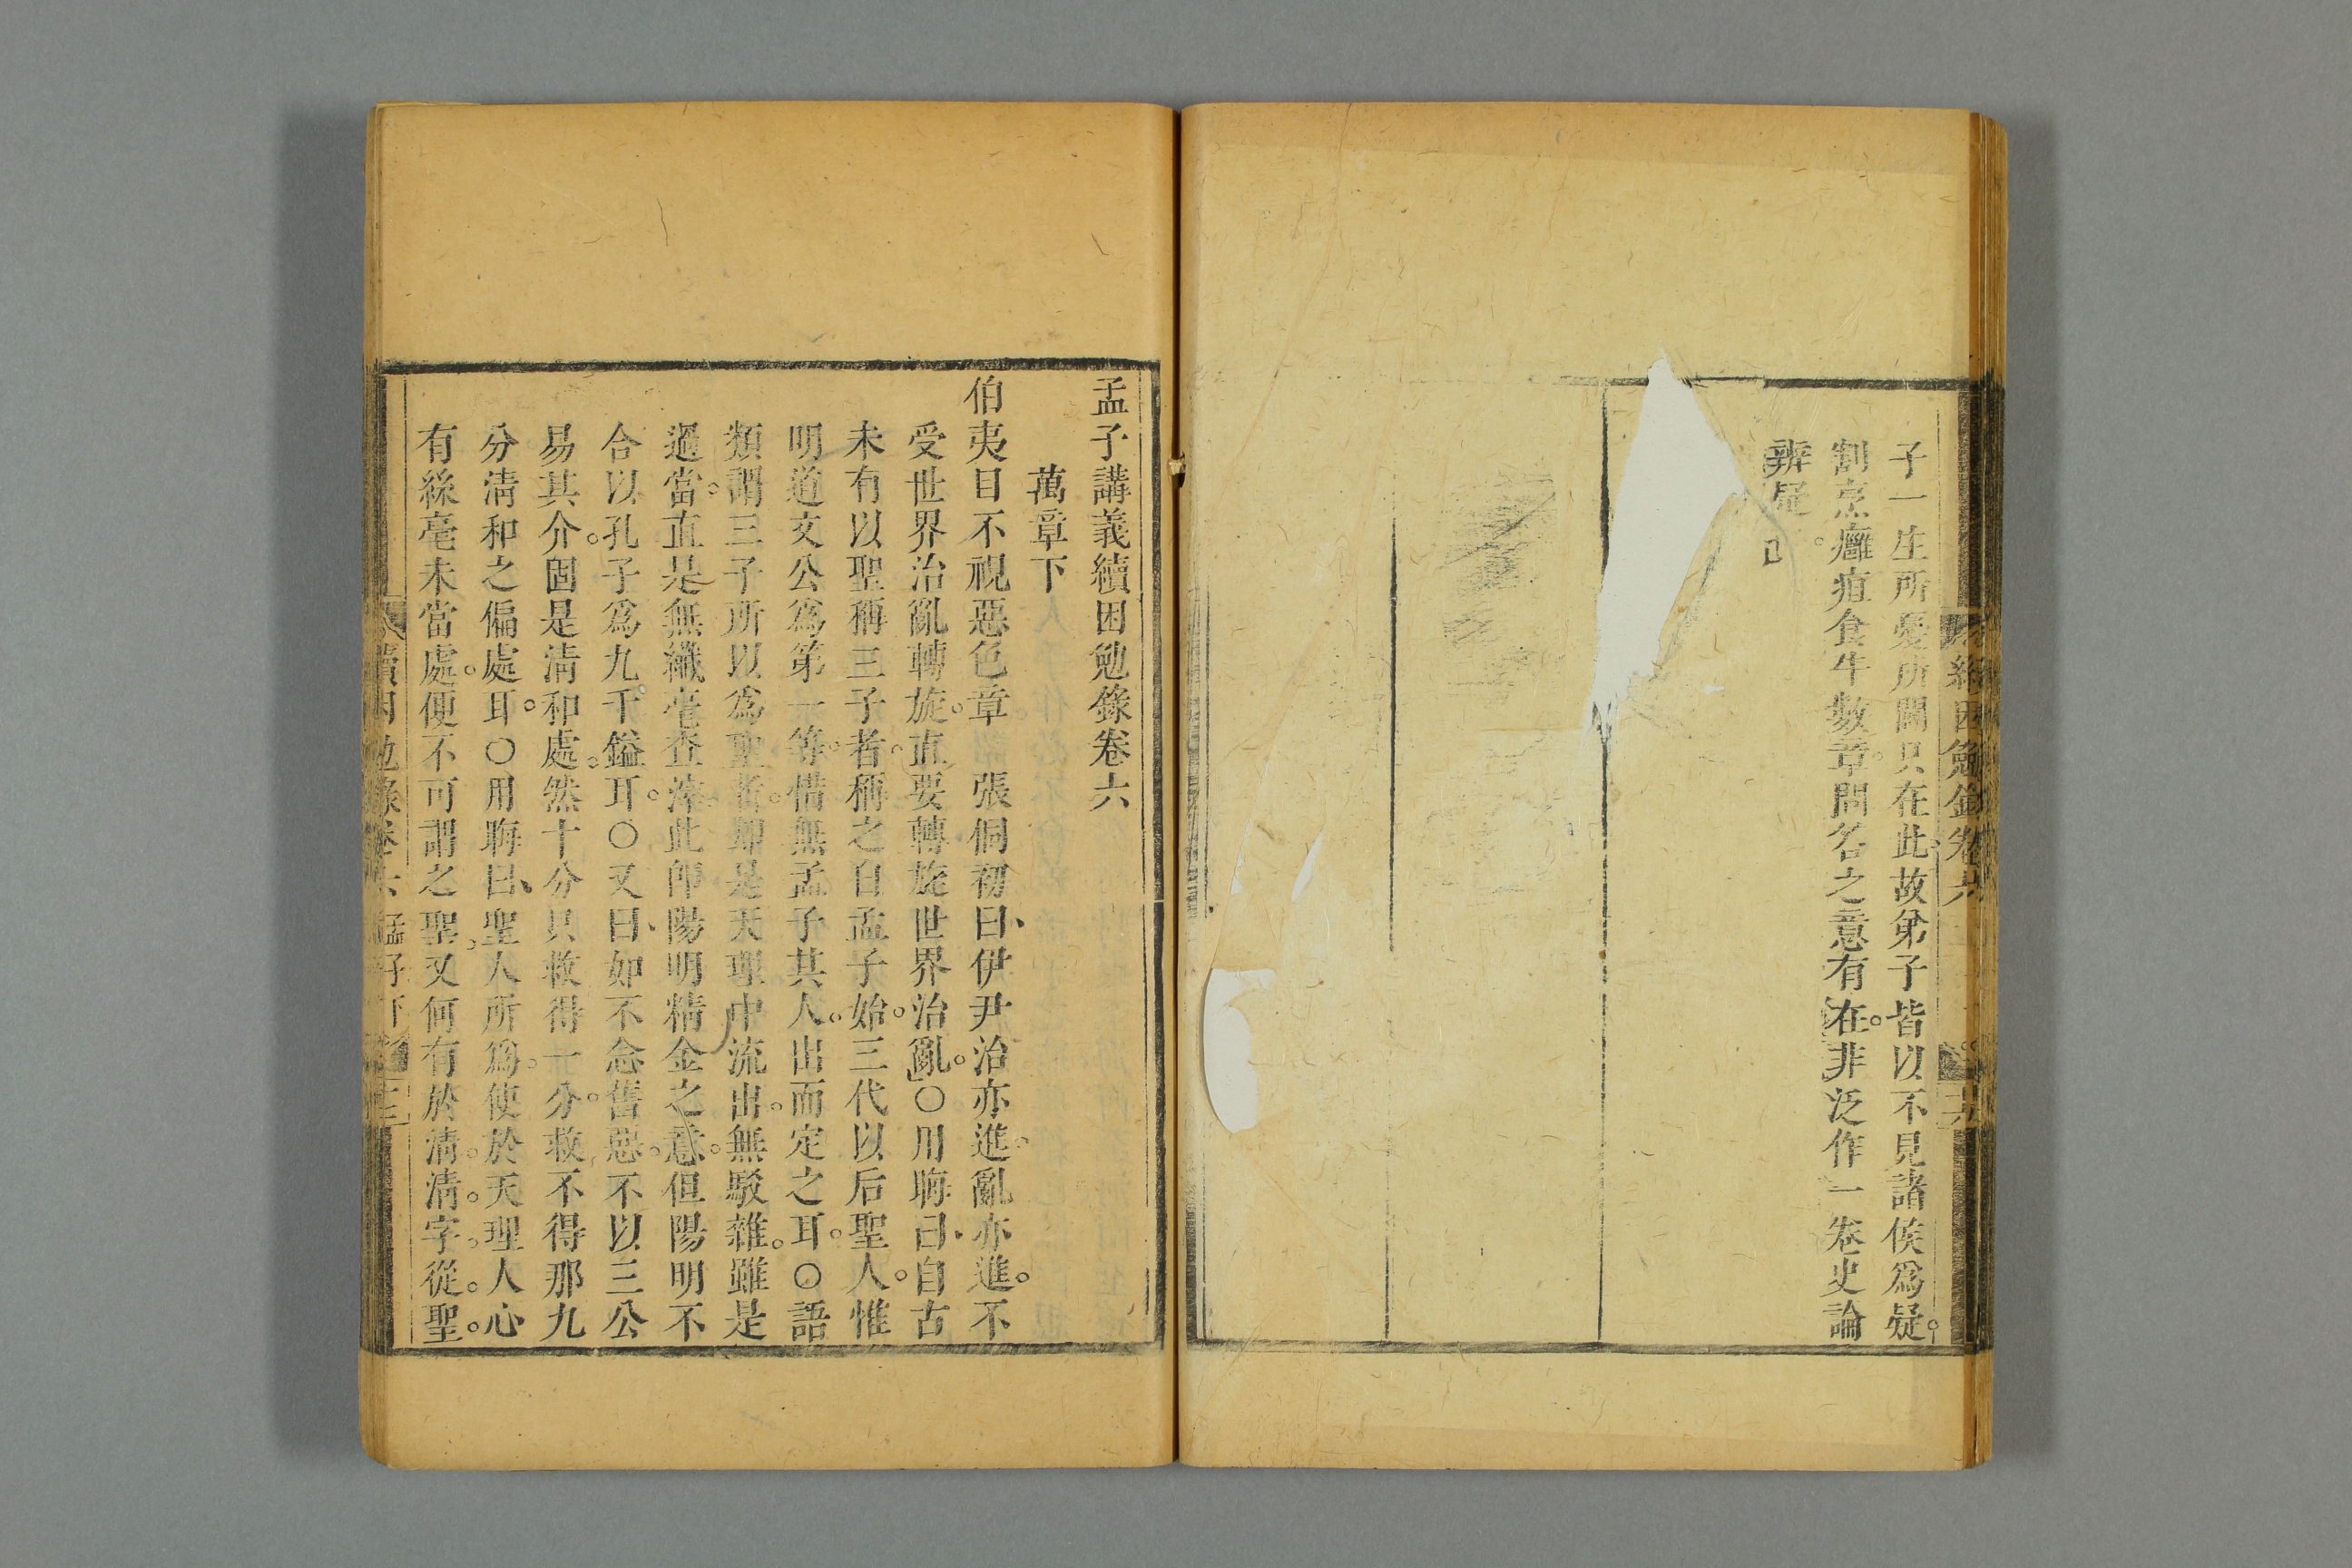 子一生所憂所闢只在此故弟子皆以不見諸侯爲疑。
割烹癰疽食牛數章問荅之意有在。非泛作一卷史論
辨疑。已
孟子講義續困勉錄卷六
萬章下
伯夷目不視惡色章　張侗初曰、伊尹治亦進。亂亦進。不
受世界治亂轉旋。直要轉旋世界治亂。○用晦曰、自古
未有以聖稱三子者。稱之自孟子始。三代以后聖人。惟
明道文公爲第一等。惜無孟子其人。出而定之耳。○語
類謂三子所以爲聖者。卽是天理中流出。無駁雜。雖是
過當。直是無纖毫查滓。此卽陽明精金之意。但陽明不
合以孔子爲九千鎰耳。○又曰、如不念舊惡。不以三公
易其介。固是淸和處。然十分只救得一分。救不得那九
分淸和之偏處耳。○用晦曰、聖人所爲。使於天理人心
有絲毫未當處。便不可謂之聖。又何有於淸。淸字。從聖。
續困勉錄卷六 孟子下